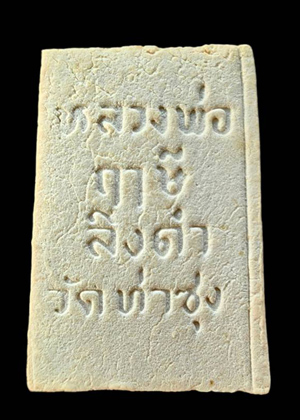 หลวงพ่อ
ฤาษี
ลิงดำ
วัดท่าซุง